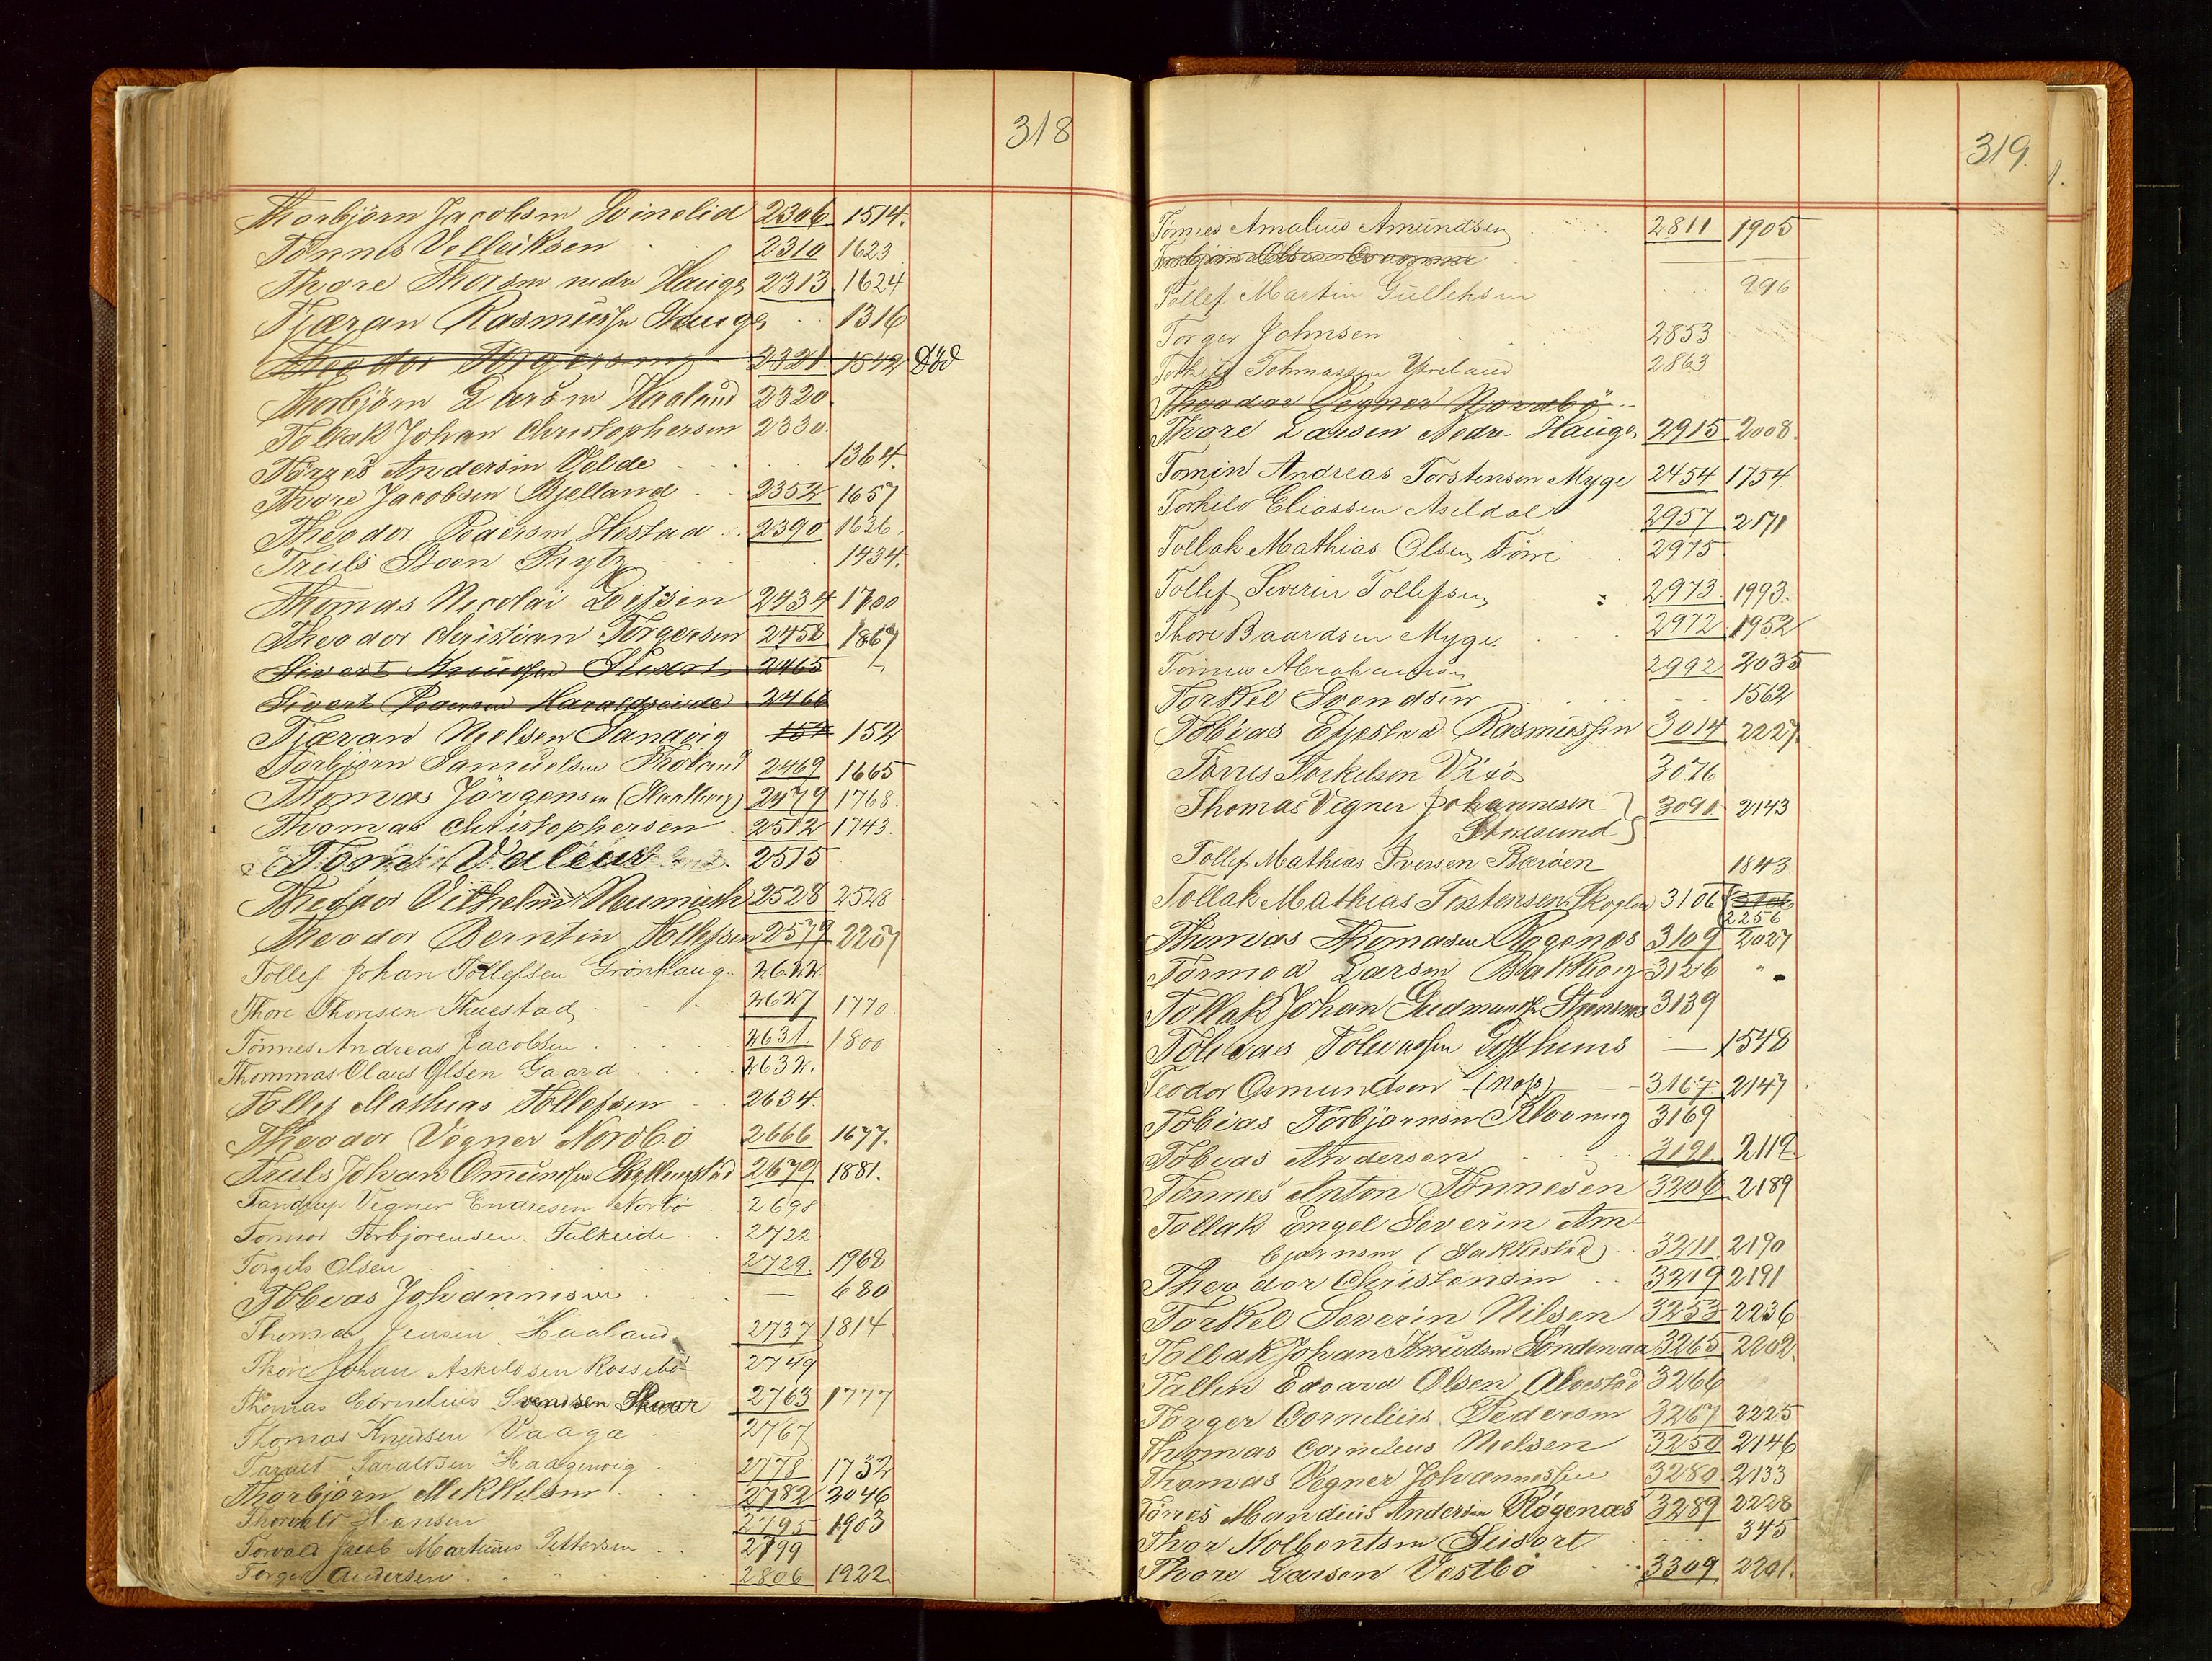 318
Thorbjörn Jacobsen Svinelid 2306 1514.
Tönnes Velleiksen 2310 1623
Thore Thorsen nedre Hauge 2313 1624
Tjæran Rasmussen Hauge 1316
Theodor Torgersen 2321 1542 Död
Thorbjörn Larsen Haaland 2320.
Tollak Johan Christophersen 2330.
Törres Andersen Velde 1364.
Thore Jacobsen Bjelland 2352 1657
Theodor Pedersen Hestad 2390 1636
Truls Steen Pryts 1434.
Thomas Nicolai 2434 1700
Theodor Christian Torgersen 2458 1867
Sivert Knudsen 2465
Sivert Pedersen Haraldseide 2466
Tjæran Nielsen Sandvig 154 152
Torbjörn Samuelsen Fröland 2469 1665
Thomas Jörgensen (Hartberg) 2479 1768
Thomas Christophersen 2512 1743.
2515
Theodor Vilhelm Neumich 2528 2528
Theodor Berntin Tollefsen 2579 2207
Tollef Johan Tollefsen Grönhaug 2622
Thore Thoresen Thuestad 2627 1770
Tönnes Andreas Jacobsen 2631. 1800
Thommas Olaus Olsen Gaard 2632.
Tollef Mathias Tollefsen 2634.
Theodor Vegner Nordbö 2666 1677.
Truls Johan Omundsen 2679 1881.
Vegner Endresen Norbö 2698
Tormod Torbjörensen Falkeide 2722
Torgils Olsen 2729. 1968
Tobias Johannesen — 680
Thomas Jensen Haaland 2737 1814
Thore Johan Askeldsen Rossebö 2749
Thomas Cornelius Svendsen Skaar 2763 1777
Thomas Knudsen Vaaga 2767
Taralt Taraldsen Haagenvig 2778 1732
Thorbjörn Mikkelsen 2782 2046
Thorvald Hansen 2795 1903
Torvald Jacob Martinus Pettersen 2799
Torger Andersen 2806 1922
319.
Tönnes Amalius Amundsen 2811 1905
Tollef Martin Gulleksen 996
Torger Johnsen 2853
Torkild Tohmassen Ytreland 2863
Theodor Vegner Nordbö
Thore Larsen Nedre Hauge 2915 2008.
Tomin Andreas Torstensen Myge 2454 1754.
Torkild Eliassen Aseldal 2957 2171
Tollak Mathias Olsen Törre 2975
Tollef Severin Tollefsen 2973 1993.
Thore Baardsen Myge. 2972 1952
Tönnes Abrahamsen 2992 2035
Torkel Svendsen 1562
Tobias Efjestad Rasmussen 3014 2227
Törres Torkelsen Vixö 3076
Thomas Vegner Johannesen } 3091. 2143
Stolesund
Tollef Mathias Iversen Bæröen 1843
Tollak Mathias Tostensen 3106 3106
2256
Thomas Thomasen Rygenes 3109 2027
Tormod Larsen Bakkevig 3126 "
Tollak Johan Gudmundsen 3139
Tobias Tobiassen — 1548
Teodor Osmundsen (Næs) 3167 2147
Tobias Torbjörnsen Klovning 3169
Tobias Andersen 3191. 2119.
Tönnes Anton Tönnesen 3206 2189
Tollak Engel Severin Am-
björnsen (Sakkestad) 3211 2190
Theodor Christensen 3219 2191
Torkel Severin Nilsen 3253 2236
Tollak Johan Knudsen Söndenaa 3265 2202.
Tallin Edvard Olsen Alvestad 3266
Torger Cornelius Pedersen 3267 2225
Thomas Cornelius Nielsen 3250 2146
Thomas Vegner Johannessen 3280 2133
Törres Mandius Andersen Rögenæs 3289 2228
Thor Kolbentsen 345
Thore Larsen Vestbö 3309 2201.